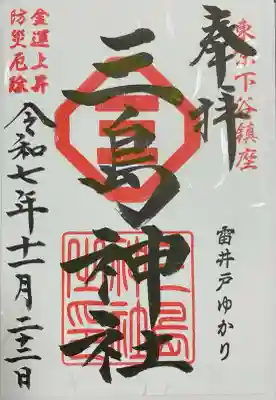 東京下谷鎮座
奉拝
雷井戸ゆかり
三島神社
三島神社之印
金運上昇
防災厄除
令和七年十一月二十三日